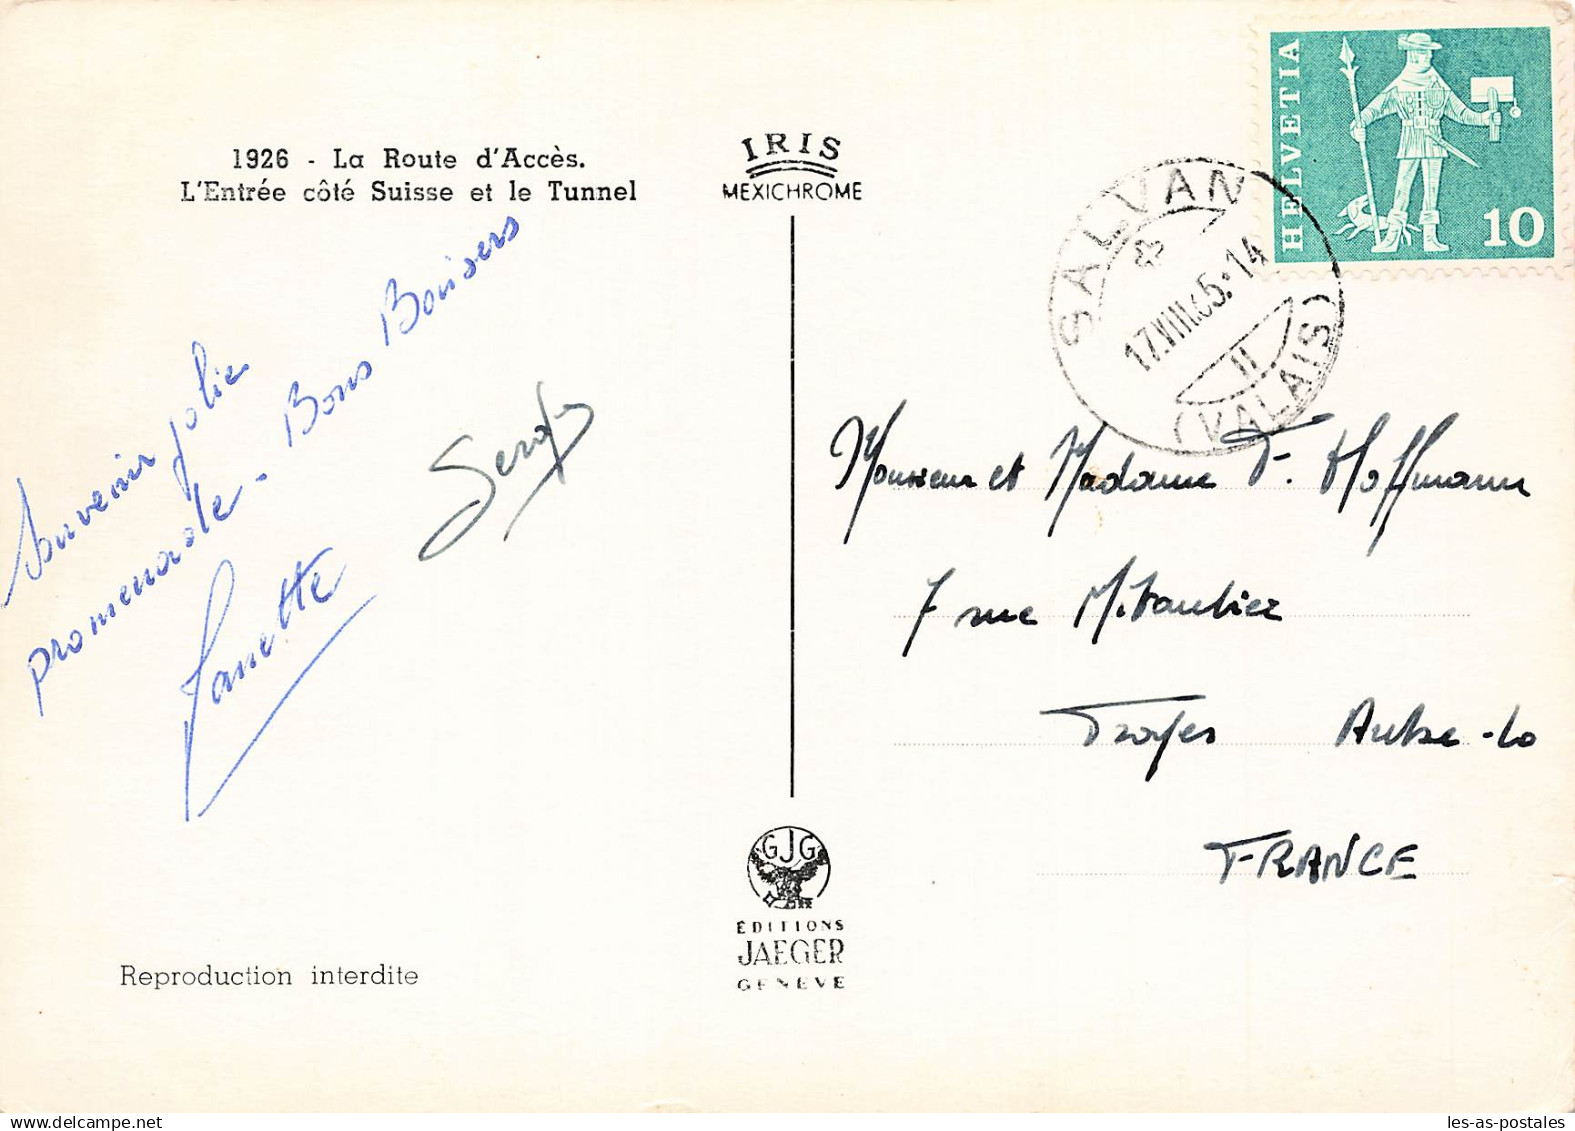 1926 - La Route d'Accès.
L'Entrée côté Suisse et le Tunnel
Souvenir jolie
promenade - Bons Baisers
Serge
IRIS
MEXICHROME
ÉDITIONS
JAEGER
GENÈVE
GJG
Reproduction interdite
HELVETIA
10
SALVAN
17.VIII.65.-14
II
(VALAIS)
Monsieur et Madame F. Hoffmann
7 rue Mitantier
Troyes Aube -10
FRANCE
souvenir_de_paris
les-as-postales